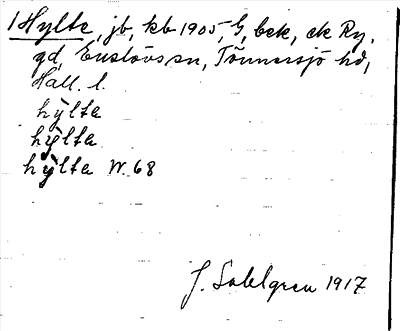 1 Hylte, jb, kb 1905, G, bek, ek Ry.
gd, Enslövs sn, Tönnersjö hd,
Hall. l.
hylta
hylta
hylta W. 68
J. Sahlgren 1917